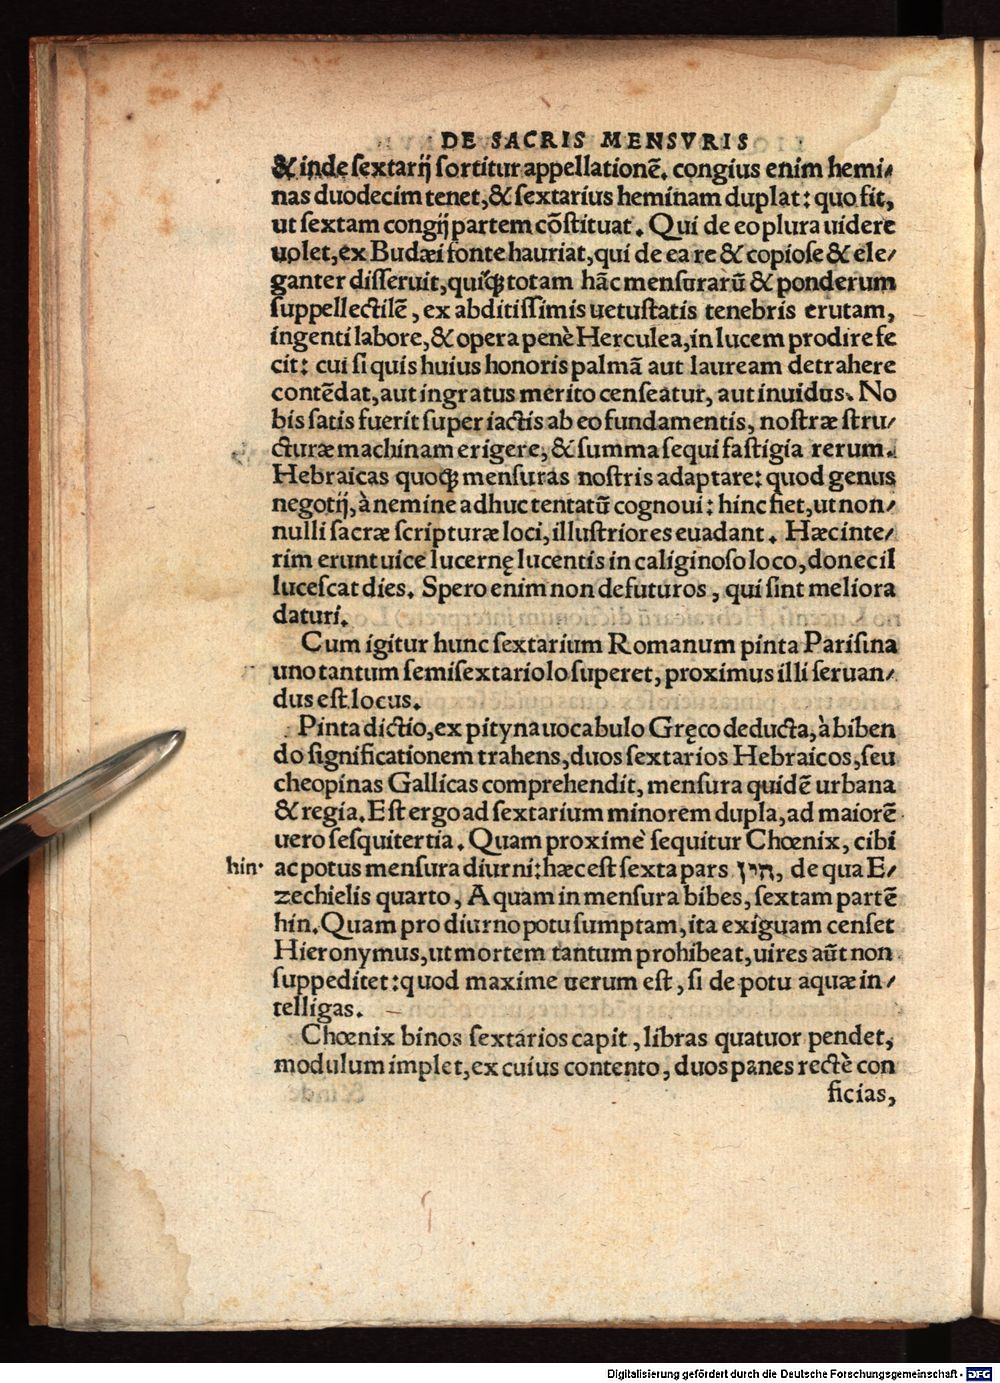 DE SACRIS MENSVRIS
& inde sextarij sortitur appellationẽ. congius enim hemi⸗
nas duodecim tenet, & sextarius heminam duplat: quo fit,
ut sextam congij partem cõstituat. Qui de eo plura uidere
uolet, ex Budæi fonte hauriat, qui de ea re & copiose & ele⸗
ganter disseruit, quiq; totam hãc mensurarũ & ponderum
suppellectilẽ, ex abditissimis uetustatis tenebris erutam,
ingenti labore, & opera penè Herculea, in lucem prodire fe
cit: cui si quis huius honoris palmã aut lauream detrahere
contẽdat, aut ingratus merito censeatur, aut inuidus. No
bis satis fuerit super iactis ab eo fundamentis, nostræ stru⸗
cturæ machinam erigere, & summa sequi fastigia rerum.
Hebraicas quoq; mensuras nostris adaptare: quod genus
negotij, à nemine adhuc tentatũ cognoui: hinc fiet, ut non⸗
nulli sacræ scripturæ loci, illustriores euadant. Hæc inte⸗
rim erunt uice lucernę lucentis in caliginoso loco, donec il
lucescat dies. Spero enim non defuturos, qui sint meliora
daturi.
Cum igitur hunc sextarium Romanum pinta Parisina
uno tantum semisextariolo superet, proximus illi seruan⸗
dus est locus.
Pinta dictio, ex pityna uocabulo Gręco deducta, à biben
do significationem trahens, duos sextarios Hebraicos, seu
cheopinas Gallicas comprehendit, mensura quidẽ urbana
& regia. Est ergo ad sextarium minorem dupla, ad maiorẽ
uero sesquitertia. Quam proximè sequitur Chœnix, cibi
hin. ac potus mensura diurni: hæc est sexta pars הין, de qua E⸗
zechielis quarto, Aquam in mensura bibes, sextam partẽ
hin. Quam pro diurno potu sumptam, ita exiguam censet
Hieronymus, ut mortem tantum prohibeat, uires aũt non
suppeditet: quod maxime uerum est, si de potu aquæ in⸗
telligas.
Chœnix binos sextarios capit, libras quatuor pendet,
modulum implet, ex cuius contento, duos panes rectè con
ficias,
Digitalisierung gefördert durch die Deutsche Forschungsgemeinschaft - DFG